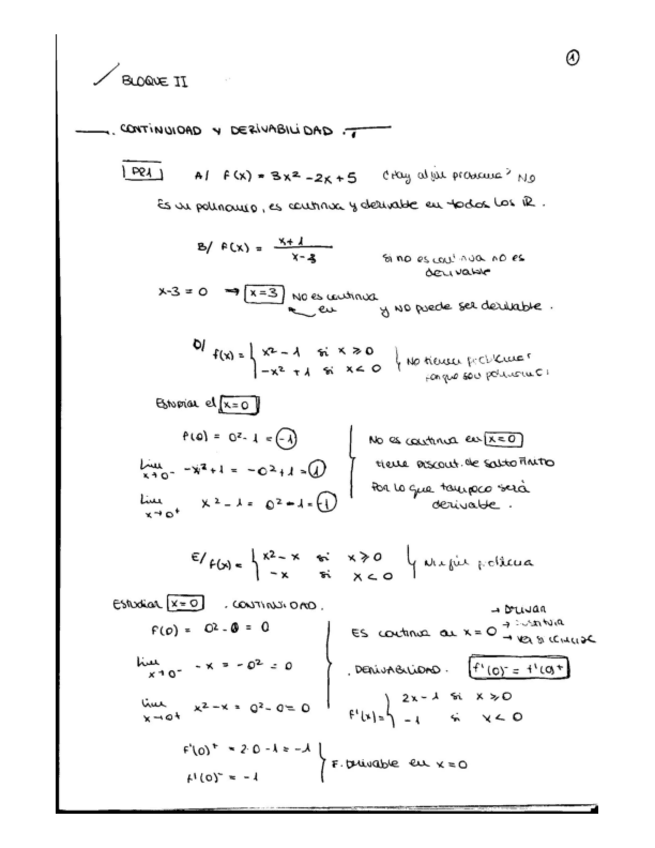 1
BLOQUE II
CONTINUIDAD Y DERIVABILIDAD
PR1 A/ f(x) = 3x² - 2x + 5 ¿Hay algún problema? NO
Es un polinomio, es continua y derivable en todos los ℝ.
B/ f(x) = x+1 / x-3
Si no es continua no es derivable
x-3 = 0 → x=3 No es continua en y NO puede ser derivable.
D/ f(x) = { x² - 1 si x ≥ 0
-x² + 1 si x < 0
No tienen problemas porque son polinomios
Estudiar el x=0
f(0) = 0² - 1 = -1
lim x→0⁻ -x² + 1 = -0² + 1 = 1
lim x→0⁺ x² - 1 = 0² - 1 = -1
No es continua en x=0
tiene Discont. de salto FINITO
Por lo que tampoco será derivable.
E/ f(x) = { x² - x si x ≥ 0
-x si x < 0
Ningún problema
Estudiar x=0 . CONTINUIDAD.
f(0) = 0² - 0 = 0
lim x→0⁻ -x = -0² = 0
lim x→0⁺ x² - x = 0² - 0 = 0
ES continua en x=0
→ Derivar
→
→ ver si
. DERIVABILIDAD. f'(0)⁻ = f'(0)⁺
f'(x) = { 2x - 1 si x ≥ 0
-1 si x < 0
f'(0)⁺ = 2·0 - 1 = -1
f'(0)⁻ = -1
F. Derivable en x=0